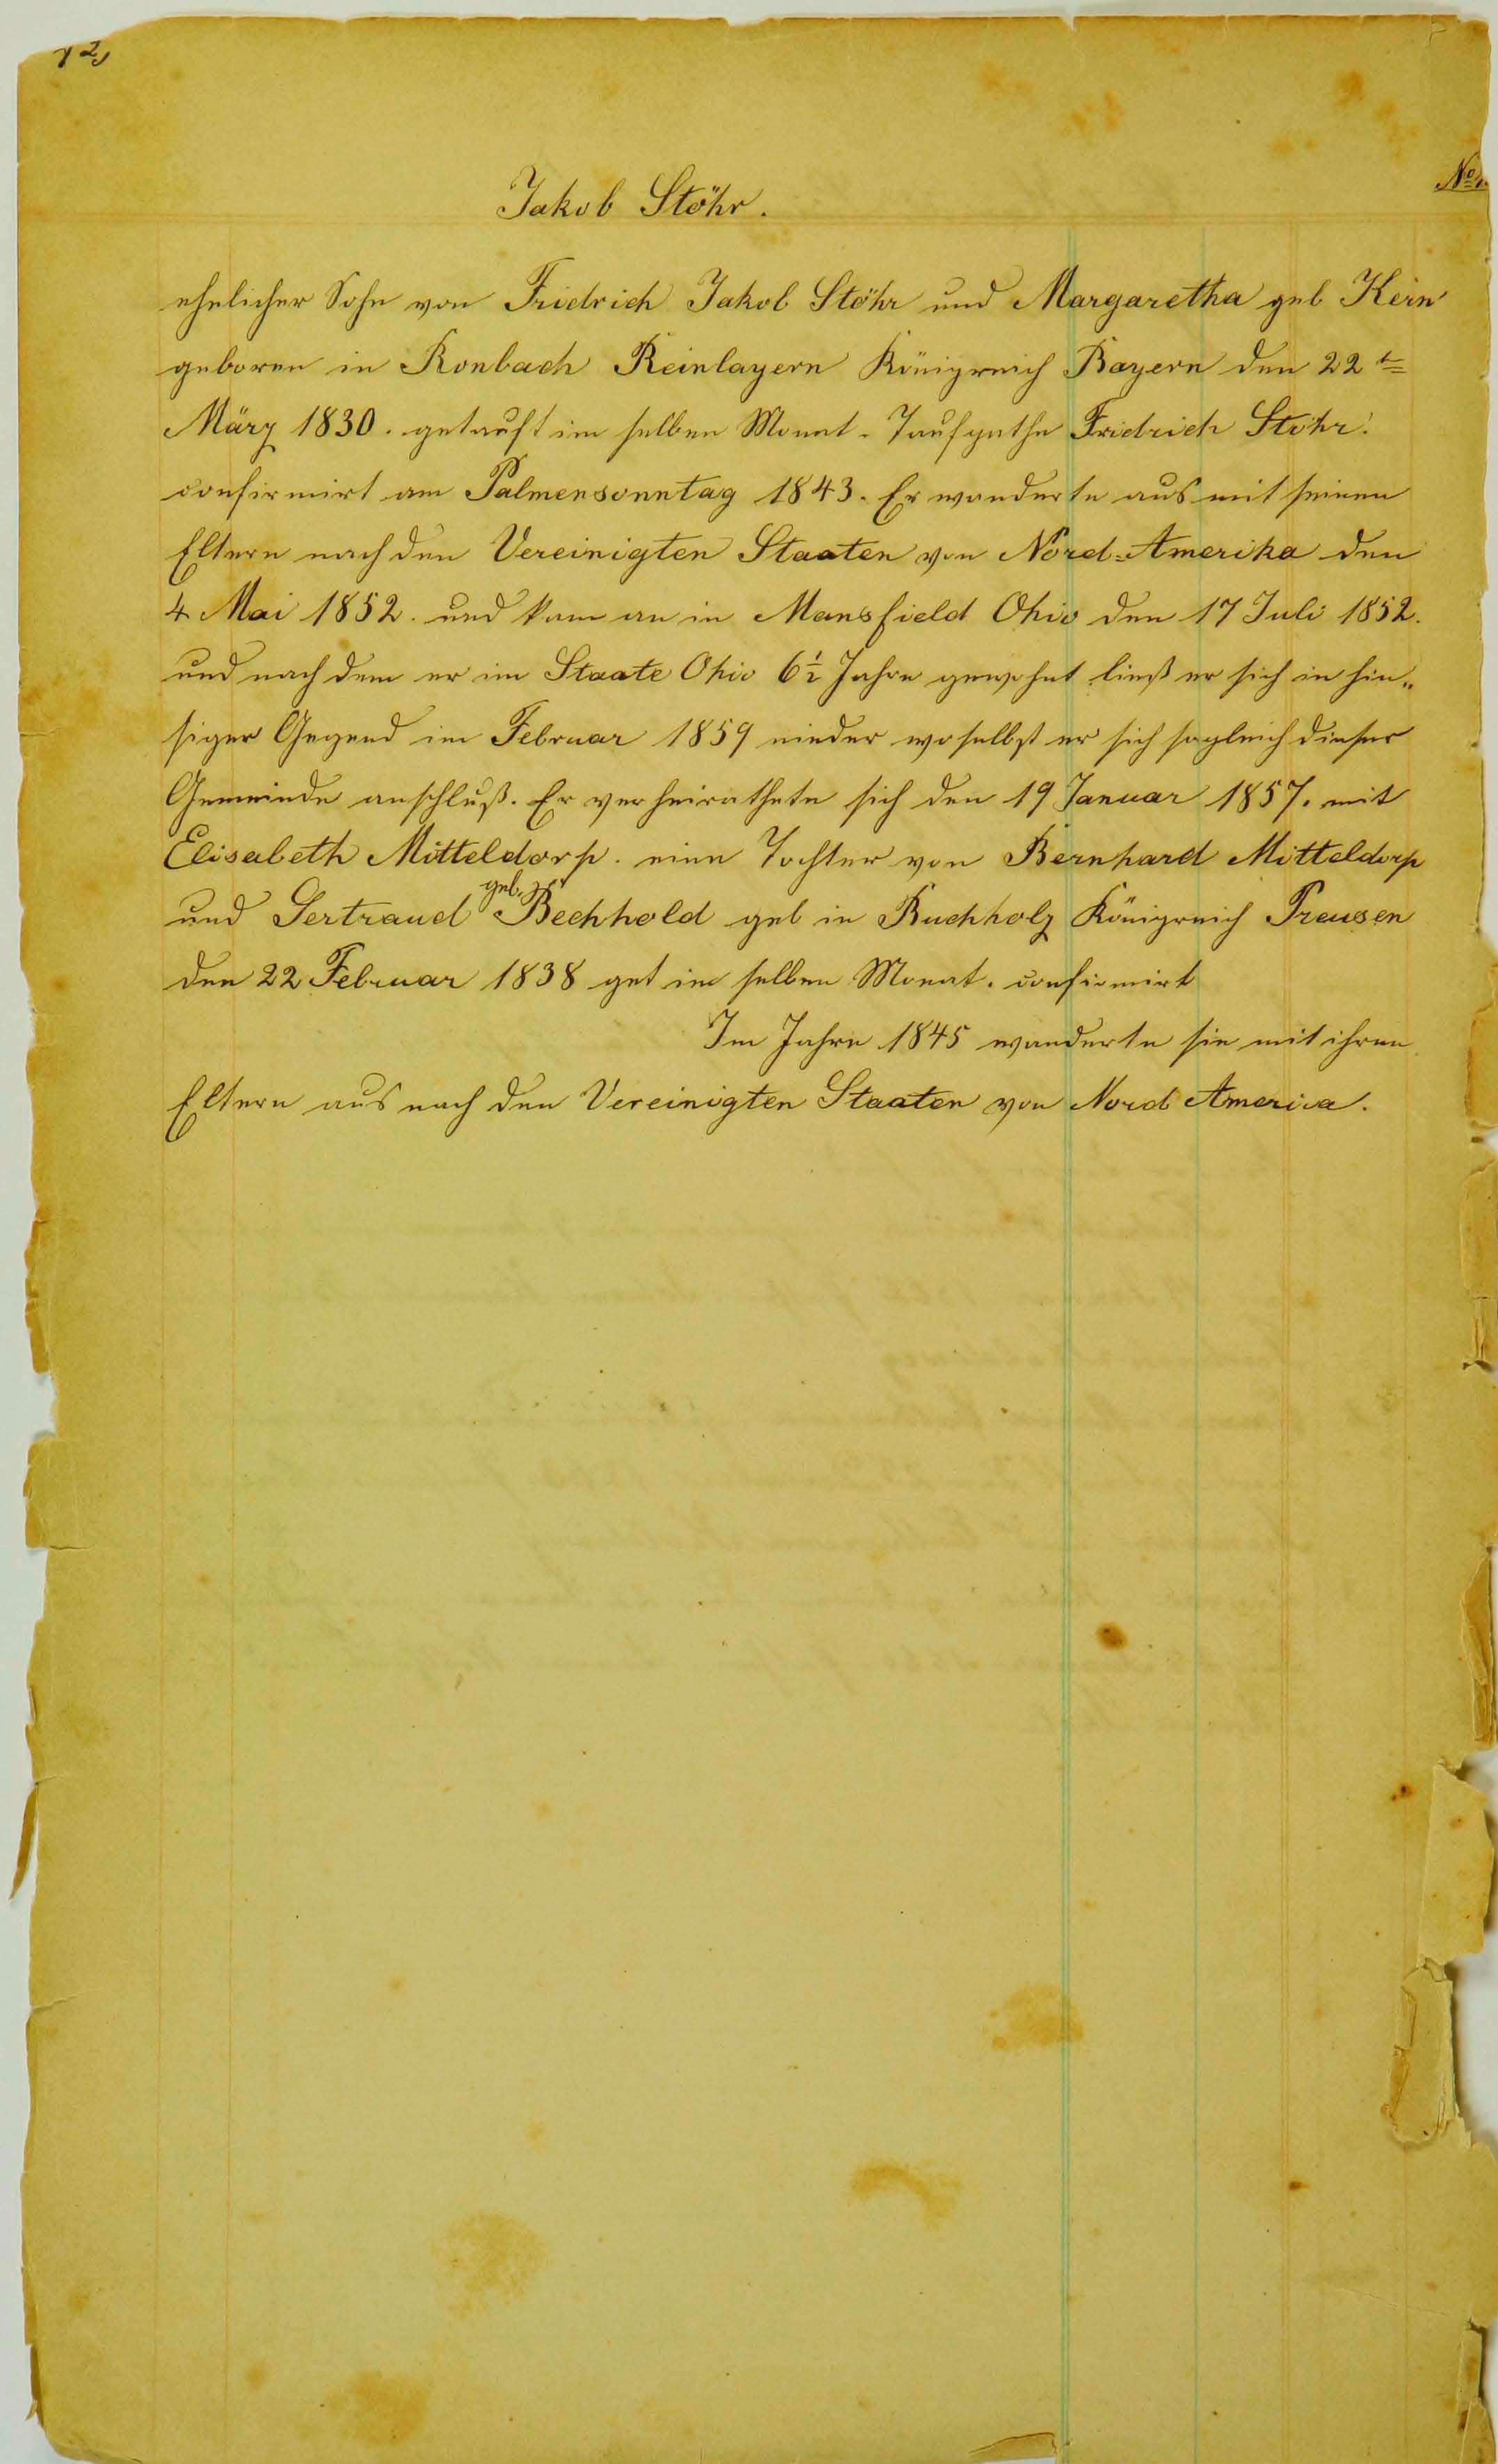 No
Jakob Stöhr.
ehelicher Sohn von Fridrich Jakob Stöhr und Margaretha geb Kern
geboren in Ronbach Reinlayern Königreich Bayern den 22t
März 1830. getauft im selben Monat. Taufpathe Fridrich Stöhr.
confirmirt am Palmensonntag 1843. Er wanderte aus mit seinen
Eltern nach den Vereinigten Staaten von Nord-Amerika den
4 Mai 1852. und kam an in Mansfield Ohio den 17 Juli 1852.
und nach dem er im Staate Ohio 6½ Jahre gewohnt ließ er sich in hie„
siger Gegend im Februar 1859 nieder woselbst er sich sogleich dieser
Gemeinde anschluß. Er verheirathete sich den 19 Januar 1857. mit
Elisabeth Mitteldorp. eine Tochter von Bernhard Mitteldorp
und Gertraud geb. Bechhold geb in Buchholz Königreich Preusen
den 22 Februar 1838 get im selben Monat. confirmirt
Im Jahre 1845 wanderte sie mit ihren
Eltern aus nach den Vereinigten Staaten von Nord America.